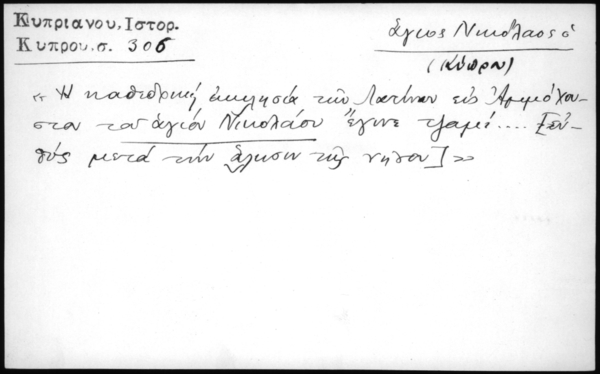 Κυπριανου, Ιστορ.
Κυπρου. σ. 306
ἅγιος Νικόλαος ὁ
(Κύπρου)
« Ἡ καθεδρική ἐκκλησία τῶν Λατίνων εἰς Ἀμμόχου-
στον τοῦ ἁγίου Νικολάου ἔγινε τζαμί.... [εὐ-
θύς μετά τήν ἅλωσιν τῆς νήσου] »